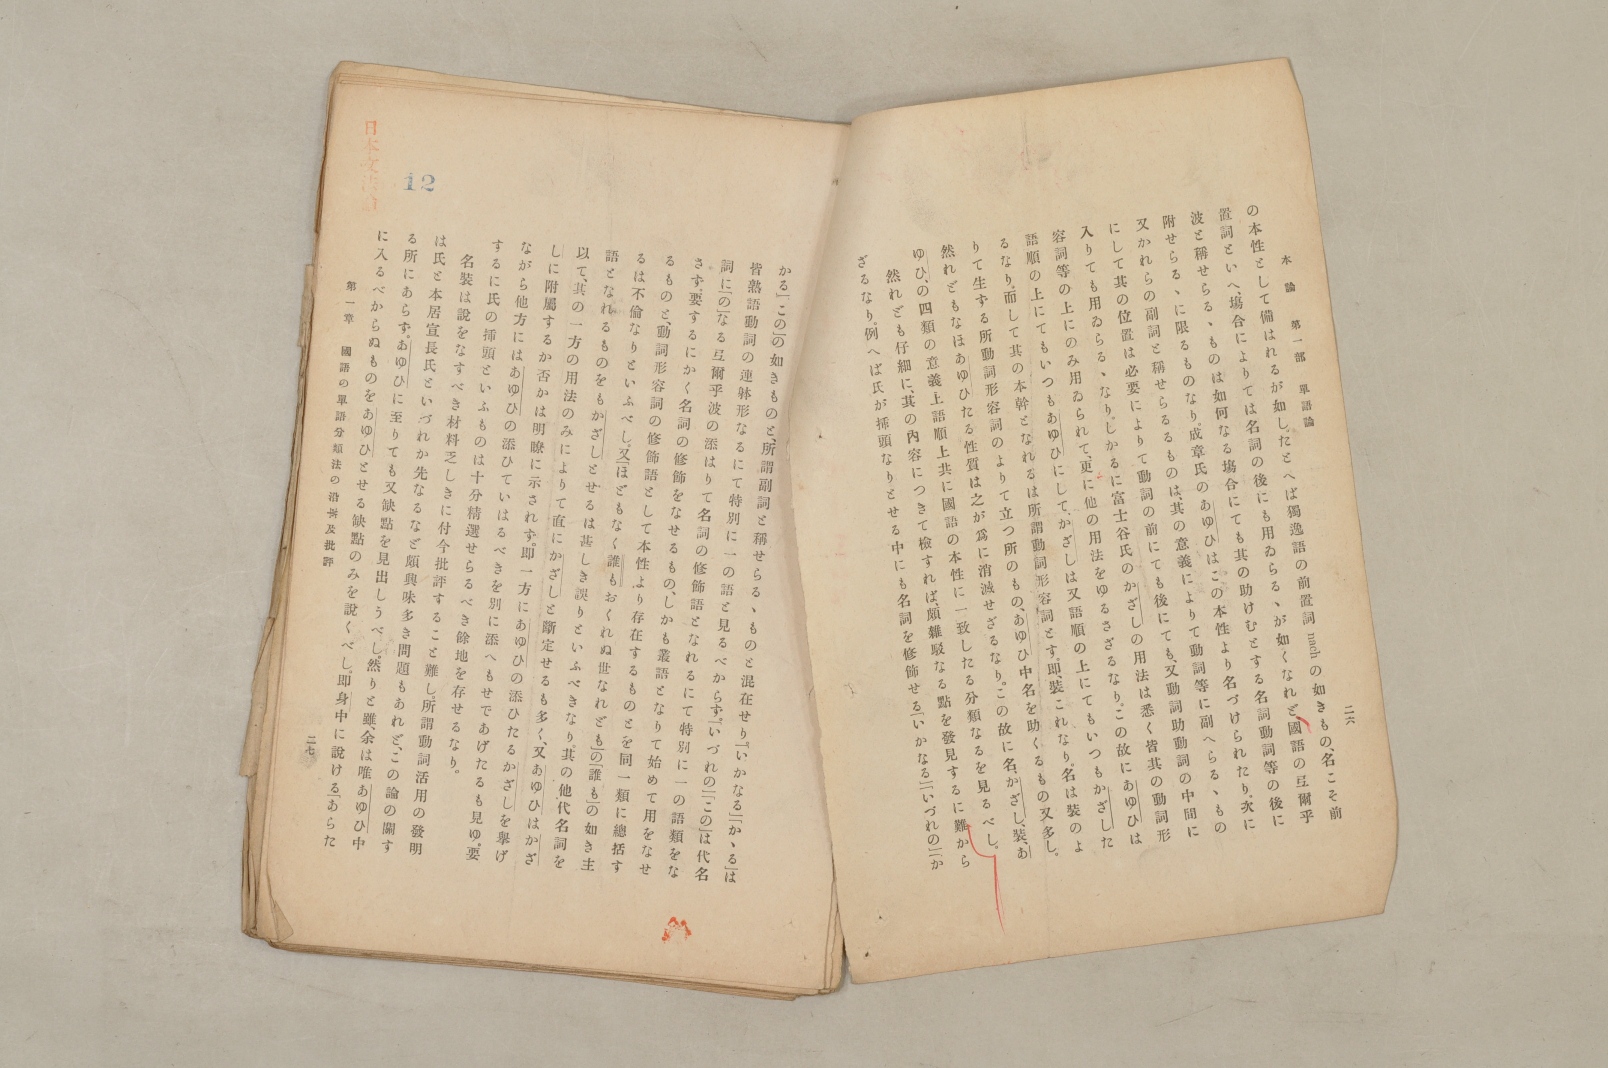 本論　第一部　單語論
二六
の本性として備はれるが如し。たとへば獨逸語の前置詞 nach の如きもの、名こそ前
置詞といへ、塲合によりては名詞の後にも用ゐらるゝが如くなれど、國語の弖爾乎
波と稱せらるゝものは如何なる塲合にても其の助けむとする名詞動詞等の後に
附せらるゝに限るものなり。成章氏のあゆひはこの本性より名づけられたり。次に
又かれらの副詞と稱せらるるものは、其の意義によりて動詞等に副へらるゝもの
にして其の位置は必要によりて動詞の前にても後にても、又動詞助動詞の中間に
入りても用ゐらるゝなり。しかるに富士谷氏のかざしの用法は悉く皆其の動詞形
容詞等の上にのみ用ゐられて、更に他の用法をゆるさざるなり。この故にあゆひは
語順の上にてもいつもあゆひにして、かざしは又語順の上にてもいつもかざした
るなり。而して其の本幹となれるは所謂動詞形容詞とす。即、裝これなり。名は裝のよ
りて生ずる所動詞形容詞のよりて立つ所のもの、あゆひ中名を助くるもの又多し。
然れどもなほあゆひたる性質は之が爲に消滅せざるなり。この故に名、かざし、裝、あ
ゆひ、の四類の意義上語順上共に國語の本性に一致したる分類なるを見るべし。
然れども仔細に、其の內容につきて檢すれば、頗雜駁なる點を發見するに難から
ざるなり。例へば氏が挿頭なりとせる中にも名詞を修飾せる「いかなる」「いづれの」「か
かる」「この」の如きものと、所謂副詞と稱せらるゝものと混在せり。「いかなる」「かゝる」は
皆熟語動詞の連躰形なるにて特別に一の語と見るべからず。「いづれの」「この」は代名
詞に「の」なる弖爾乎波の添はりて名詞の修飾語となれるにて特別に一の語類をな
さず。要するにかく名詞の修飾をなせるもの、しかも叢語となりて始めて用をなせ
るものと、動詞形容詞の修飾語として本性より存在するものとを同一類に總括す
るは不倫なりといふべし。又「ほどもなく誰もおくれぬ世なれども」の「誰も」の如き主
語となれるものをもかざしとせるは甚しき誤りといふべきなり。其の他代名詞を
以て、其の一方の用法のみによりて直にかざしと斷定せるも多く、又あゆひはかざ
しに附屬するか否かは明瞭に示されず。即一方にあゆひの添ひたるかざしを擧げ
ながら他方にはあゆひの添ひていはるべきを別に添へもせであげたるも見ゆ。要
するに氏の挿頭といふものは十分精選せらるべき餘地を存せるなり。
名裝は說をなすべき材料乏しきに付今批評すること難し。所謂動詞活用の發明
は氏と本居宣長氏といづれか先なるなど頗興味多き問題もあれど、この論の關す
る所にあらず。あゆひに至りても又缺點を見出しうべし。然りと雖、余は唯あゆひ中
に入るべからぬものをあゆひとせる缺點のみを說くべし。即身中に說ける「あらた
第一章　國語の單語分類法の沿革及批評
二七
12
日本文法論